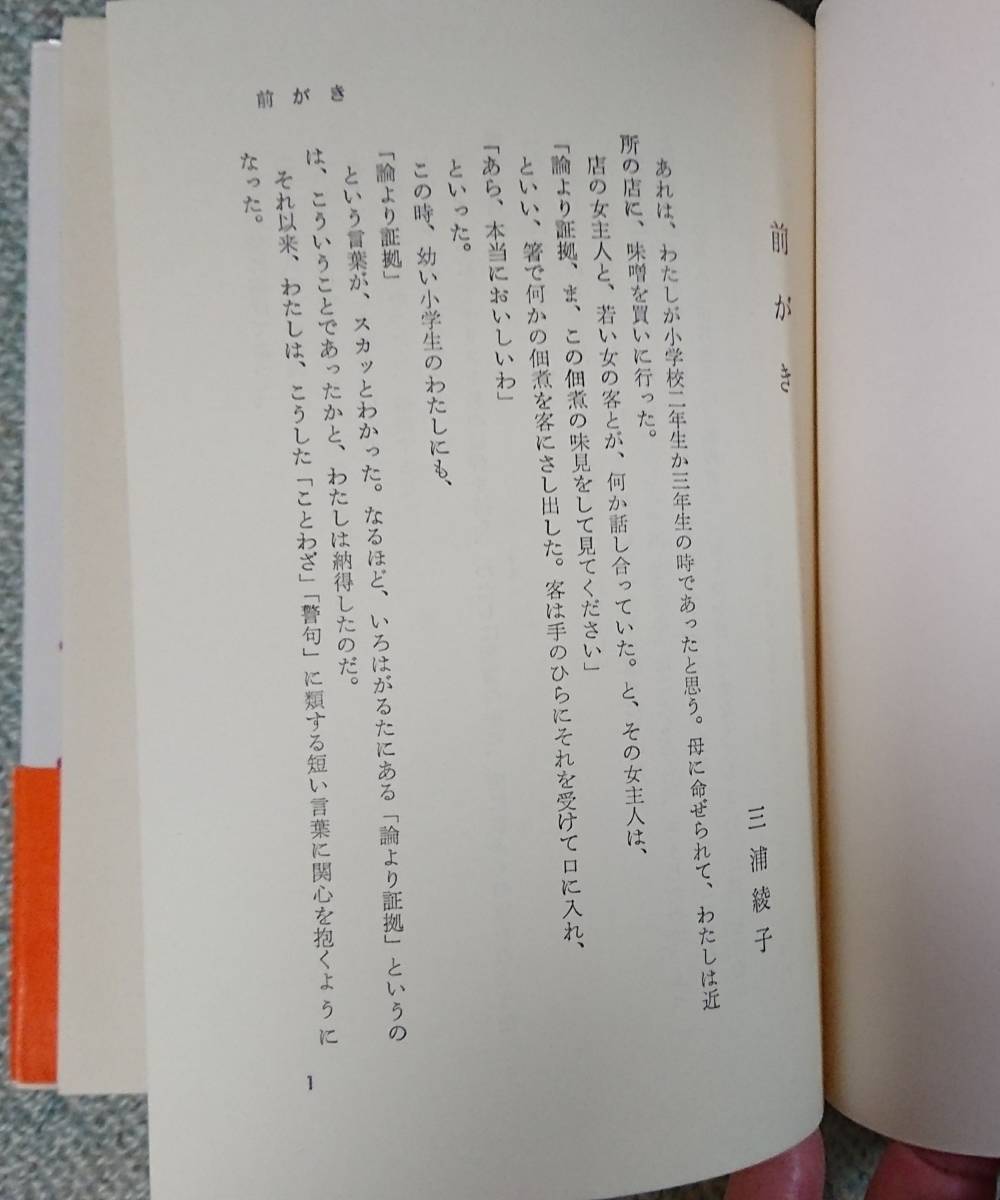 前がき
三浦綾子
あれは、わたしが小学校二年生か三年生の時であったと思う。母に命ぜられて、わたしは近
所の店に、味噌を買いに行った。
店の女主人と、若い女の客とが、何か話し合っていた。と、その女主人は、
「論より証拠、ま、この佃煮の味見をして見てください」
といい、箸で何かの佃煮を客にさし出した。客は手のひらにそれを受けて口に入れ、
「あら、本当においしいわ」
といった。
この時、幼い小学生のわたしにも、
「論より証拠」
という言葉が、スカッとわかった。なるほど、いろはがるたにある「論より証拠」というの
は、こういうことであったかと、わたしは納得したのだ。
それ以来、わたしは、こうした「ことわざ」「警句」に類する短い言葉に関心を抱くように
なった。
前がき
1